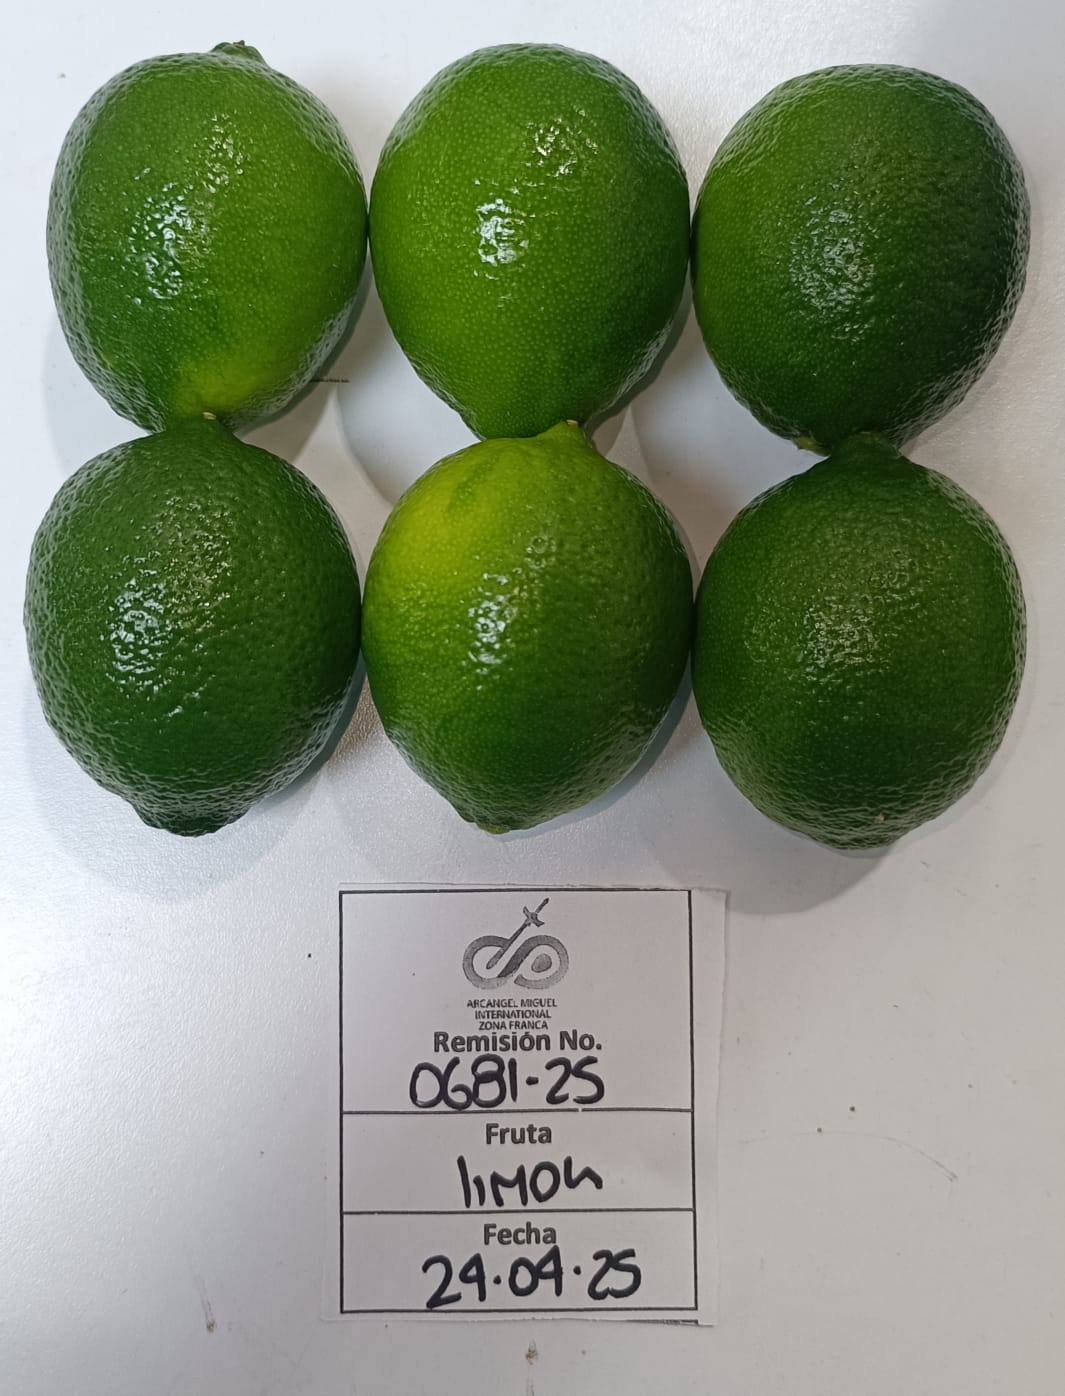 ARCANGEL MIGUEL
INTERNATIONAL
ZONA FRANCA
Remisión No.
0681-25
Fruta
limon
Fecha
24.04.25